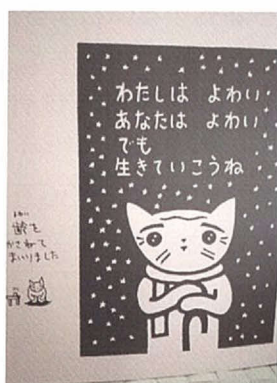 わたしは よわい
あなたは よわい
でも
生きていこうね
齢を
かさねて
まいりました